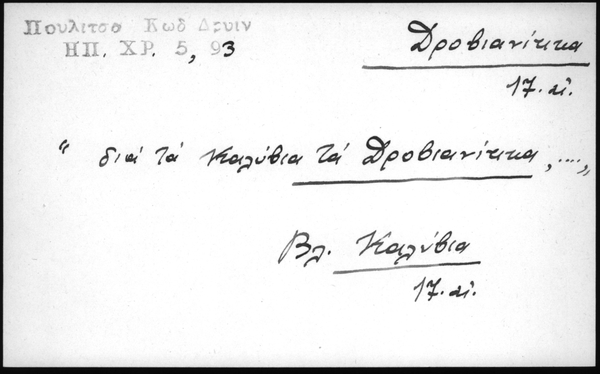 Πουλιτσα Κωδ Δρυιν
ΗΠ. ΧΡ. 5, 93
Δροβιανίτικα
17. αἰ.
“ διά τά Καλύβια τά Δροβιανίτικα, ....„
Βλ. Καλύβια
17. αἰ.